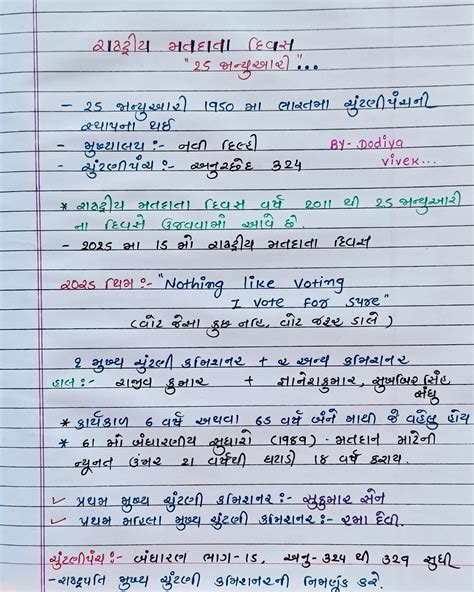 રાષ્ટ્રીય મતદાતા દિવસ
"૨૫ જાન્યુઆરી"...
- ૨૫ જાન્યુઆરી 1950 મા ભારતમા ચુંટણીપંચની
સ્થાપના થઈ
- મુખ્યાલય :- નવી દિલ્હી
BY- Dodiya
- ચુંટણીપંચ :- અનુચ્છેદ 324
vivek...
* રાષ્ટ્રીય મતદાતા દિવસ વર્ષ 2011 થી 25 જાન્યુઆરી
ના દિવસે ઉજવવામાં આવે છે.
- 2025 મા 15 મો રાષ્ટ્રીય મતદાતા દિવસ
2025 થિમ :- "Nothing like voting
I vote for sure"
(વોટ જેસા કુછ નહિ, વોટ જરૂર ડાલે)
૧ મુખ્ય ચુંટણી કમિશનર + ૨ અન્ય કમિશનર
હાલ :- રાજીવ કુમાર + જ્ઞાનેશકુમાર, સુખબિર સિંહ
સંધુ
* કાર્યકાળ 6 વર્ષ અથવા 65 વર્ષ બંને માથી જે વહેલુ હોય
* 61 મો બંધારણીય સુધારો (1989) - મતદાન માટેની
ન્યૂનત ઉંમર 21 વર્ષથી ઘટાડી 18 વર્ષ કરાય.
✓ પ્રથમ મુખ્ય ચુંટણી કમિશનર :- સુકુમાર સેન
✓ પ્રથમ મહિલા મુખ્ય ચુંટણી કમિશનર :- રમા દેવી.
ચુંટણીપંચ :- બંધારણ ભાગ-15, અનુ-324 થી 329 સુધી
- રાષ્ટ્રપતિ મુખ્ય ચુંટણી કમિશનરની નિમણુંક કરે.